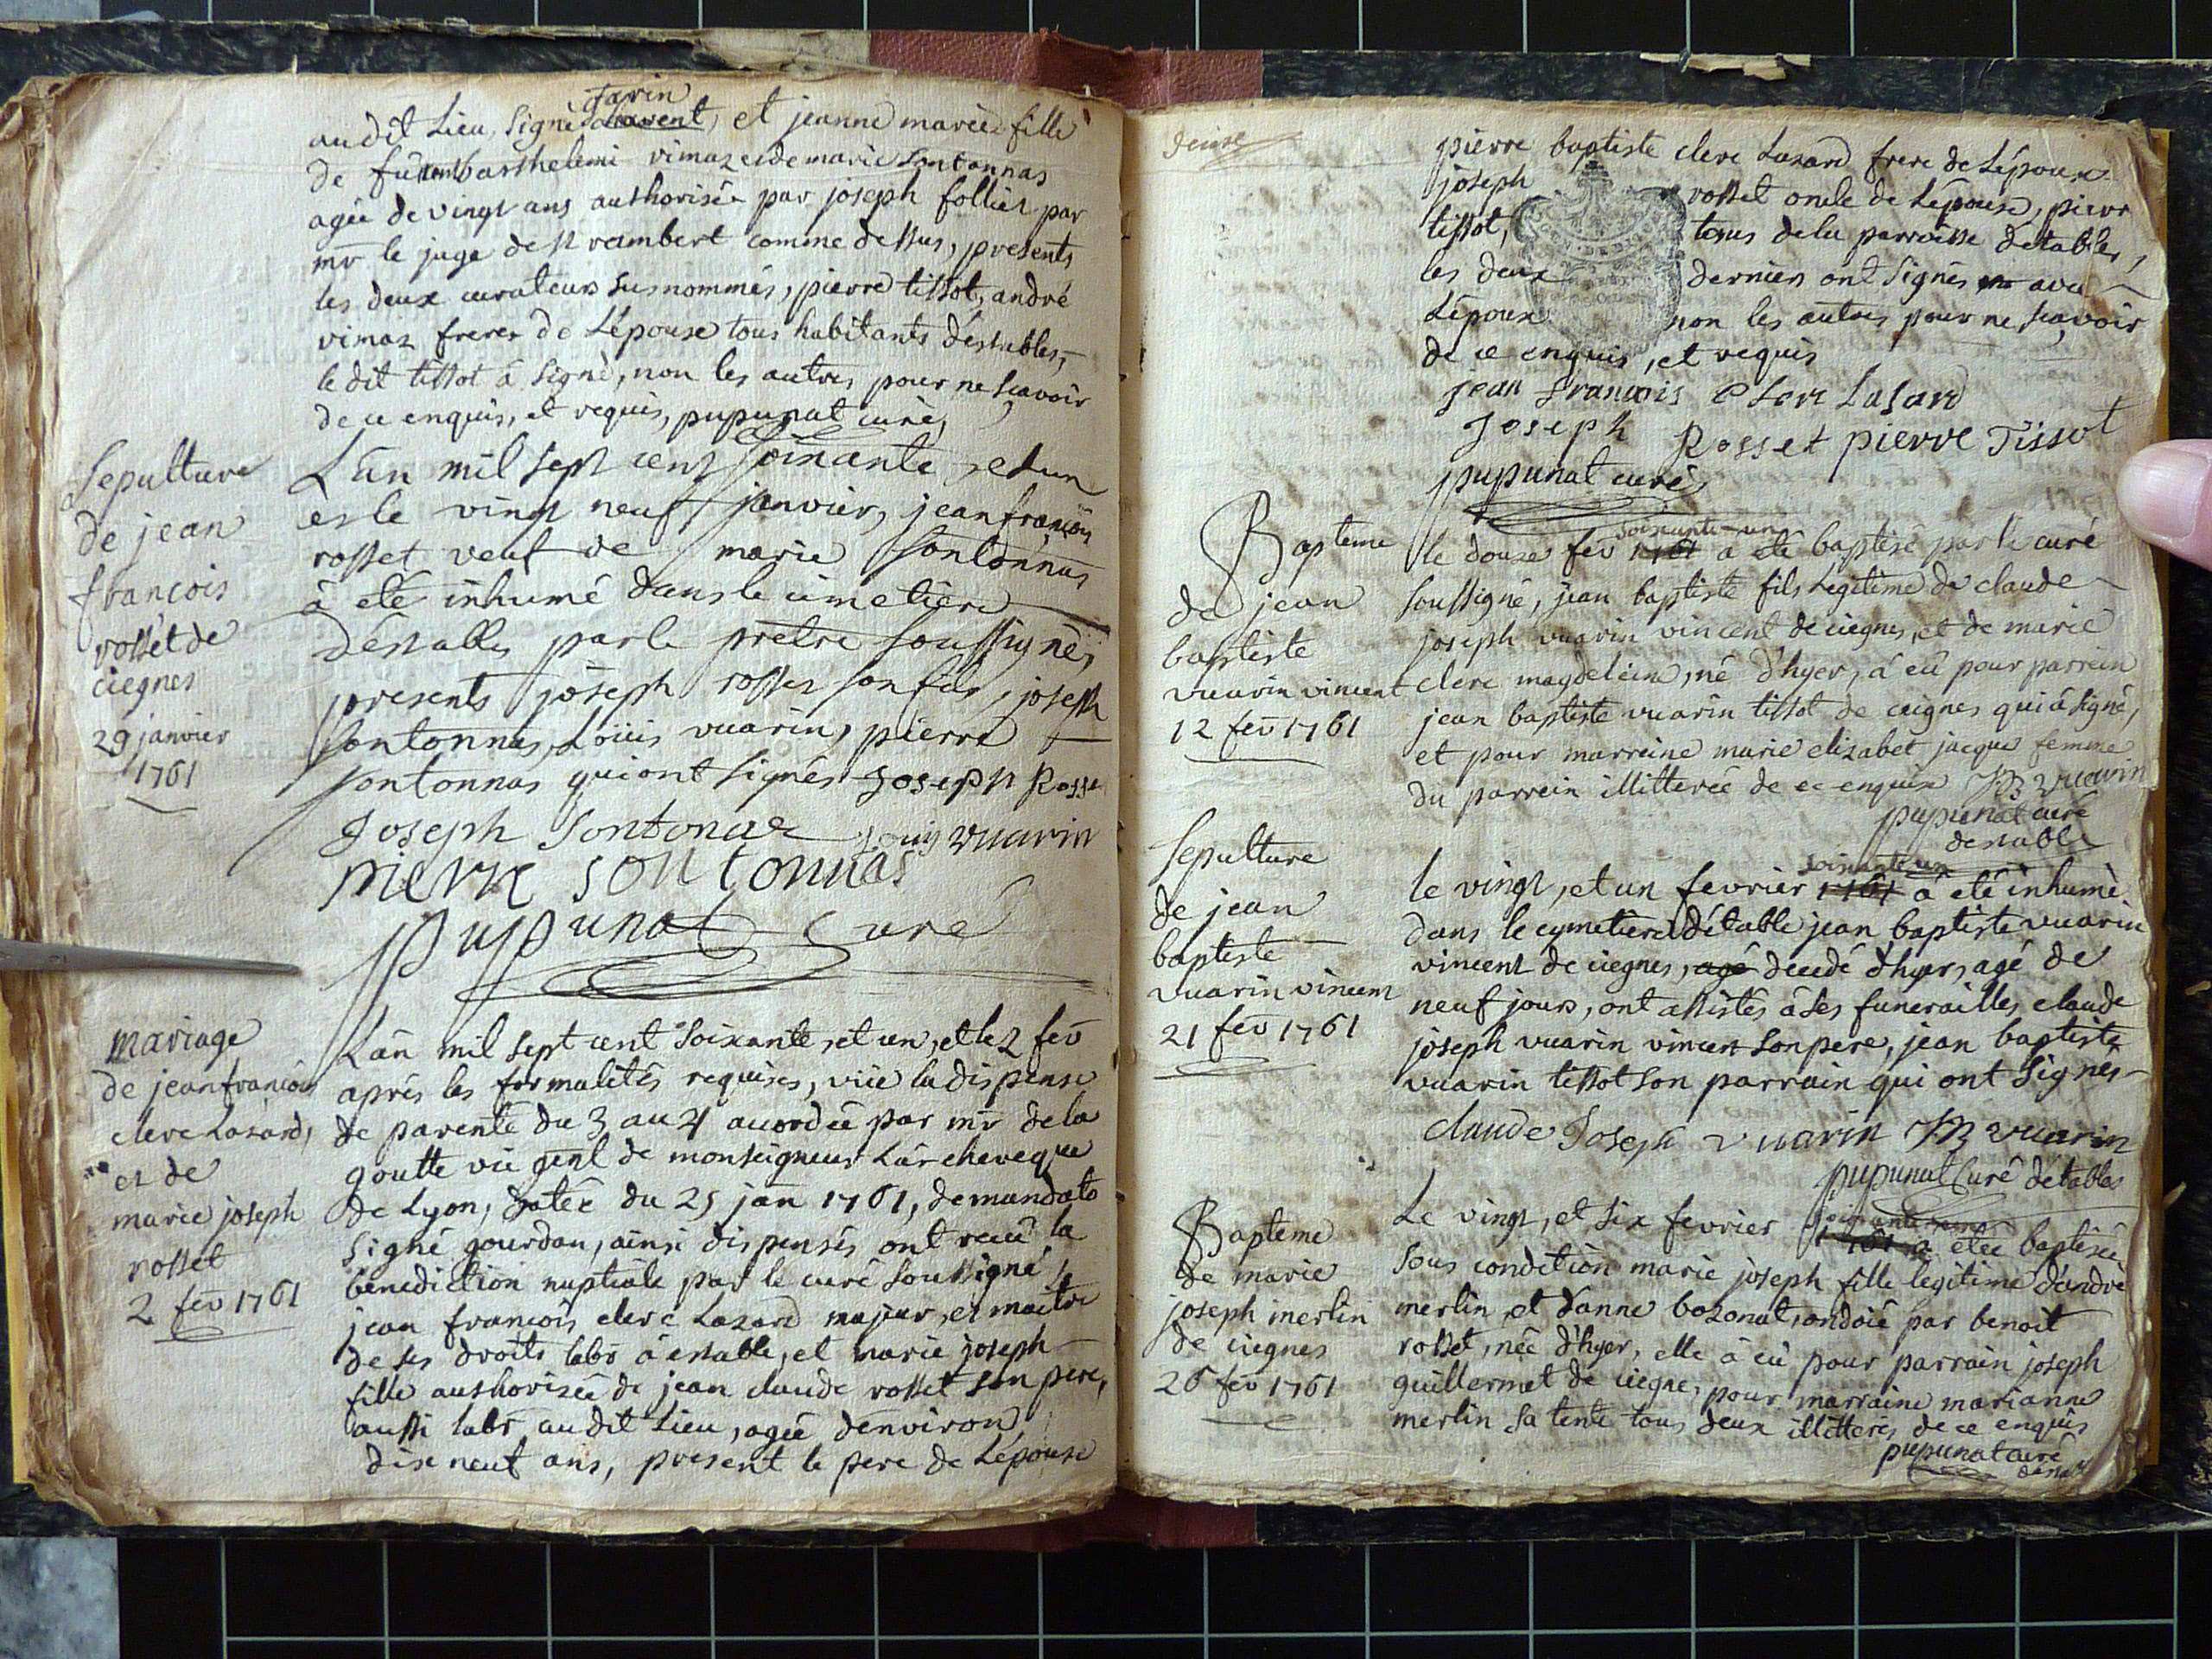 farin
au dit Lieu, signé et jeanne marie fille
de barthelemi vimaz et de marie sontonnas
agée de vingt ans authorisée par joseph follier par
mr le juge de st rambert comme dessus, presents
les deux curateurs susnommés, pierre tissot, andré
vimaz freres de Lépouse tous habitants déstables,
le dit tissot á signé, non les autres pour ne scavoir
de ce enquis, et requis, pupunat curé,
Sepulture
de jean
francois
rosset de
ciegnes
29 janvier
1761
Lán mil sept cent soixante et un
et le vingt neuf janvier, jean francois
rosset veuf de marie sontonnas
á eté inhumé dans le cimetiere
déstables par le prétre soussigné,
presents joseph rosset son fils, joseph
sontonnas, Loüis vuarin, pierre
sontonnas qui ont signés Joseph Rosset
Joseph Sontonas Louis vuarin
pierre sontonnas
pupunat Curé
Mariage
de jean francois
clerc Lazard,
et de
marie joseph
rosset
2 fev 1761
Lán mil sept cent soixante, et un, et le 2 fev
aprés les formalités requises, vüe la dispense
de parenté du 3 au 4 accordée par mr de la
goutte vic genl de monseigneur Lárcheveque
de Lyon, datée du 25 jan 1761, de mandato
signé gourdan, ainsi dispensés ont recu la
benediction nuptiale par le curé soussigné,
jean francois clerc Lazard majeur, et maitre
de ses droits labr á estable, et marie joseph
fille authorisée de jean claude rosset son pere,
aussi labr au dit Lieu, agée dénviron
dix neuf ans, present le pere de Lépouse
pierre baptiste clerc Lazard frere de Lépoux
joseph rosset oncle de Lépouse, pierre
tissot, tous de la parroisse détables,
les deux derniers ont signés avec
Lépoux non les autres pour ne scavoir
de ce enquis, et requis
jean francois Clerc Lasard
Joseph Rosset pierre Tissot
pupunat curé
Bapteme
de jean
baptiste
vuarin vincent
12 fev 1761
soixante-un
le douze fev 1761 a eté baptisé par le curé
soussigné, jean baptiste fils Legitime de claude
joseph vuarin vincent de ciegnes, et de marie
clerc magdeleine, né d'hyer, á eü pour parrein
jean baptiste vuarin tissot de ciegnes qui á signé,
et pour marreine marie elizabet jacque femme
du parrein illitterée de ce enquise JB vuarin
pupunat curé
destable
Sepulture
de jean
baptiste
vuarin vincent
21 fev 1761
soixante un
le vingt, et un fevrier 1761 á eté inhumé
dans le cymetiere détable jean baptiste vuarin
vincent de ciegnes, agé decedé d'hyer, agé de
neuf jours, ont assistés á ses funerailles claude
joseph vuarin vincent son pere, jean baptiste
vuarin tissot son parrain qui ont signés
claude Joseph vuarin JB vuarin
pupunat Curé détables
Bapteme
de marie
joseph merlin
de ciegnes
26 fev 1761
soixante un
Le vingt, et six fevrier 1761 a etée baptisée
sous condition marie joseph fille legitime d'andré
merlin, et d'anne bozonat, ondoié par benoit
rosset, née d'hyer, elle á eü pour parrain joseph
guillermet de ciegne, pour marraine marianne
merlin sa tente tous deux illitterés de ce enquis
pupunat curé